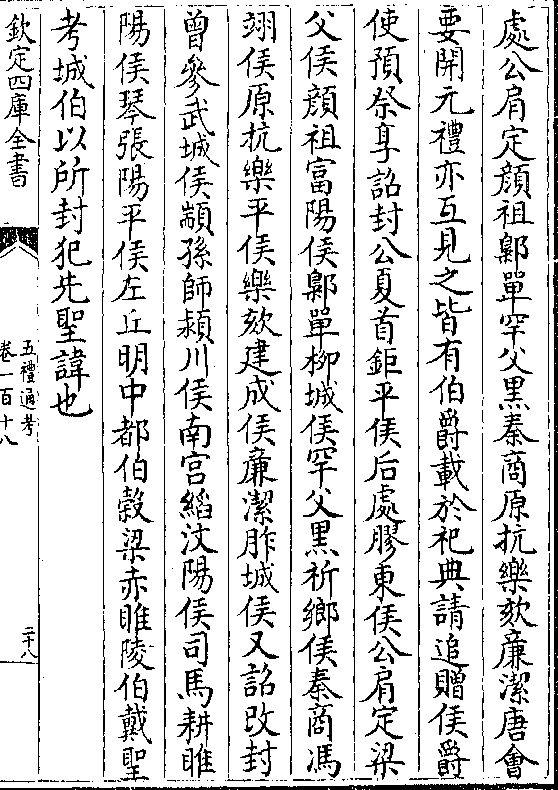 處公肩定顔祖鄡單罕父黒秦商原抗樂欬廉潔唐會
要開元禮亦互見之皆有伯爵載於祀典請追贈侯爵
使預祭享詔封公夏首鉅平侯后處膠東侯公肩定梁
父侯顔祖富陽侯鄡單柳城侯罕父黒祈鄉侯秦商馮
翊侯原抗樂平侯樂欬建成侯廉潔胙城侯又詔改封
曾參武城侯顓孫師潁川侯南宫縚汶陽侯司馬耕睢
陽侯琴張陽平侯左丘明中都伯榖梁赤睢陵伯戴聖
考城伯以所封犯先聖諱也
欽定四庫全書
五禮通考
卷一百十八
二十八